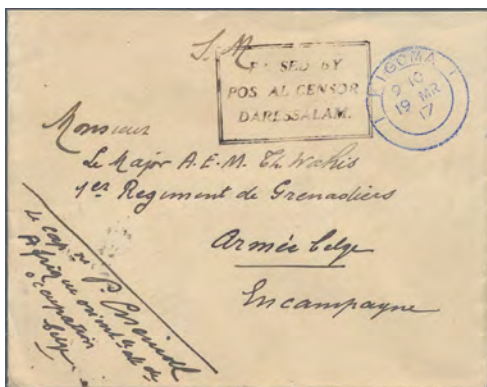 S. M.
PASSED BY
POSTAL CENSOR
DARESSALAM.
KIGOMA
9 10
19 MR
17
Monsieur
Le Major A.E.M. Th Wahis
1er Regiment de Grenadiers
Armée belge
En campagne
Le capne P.
Afrique orientale de
occupation
belge